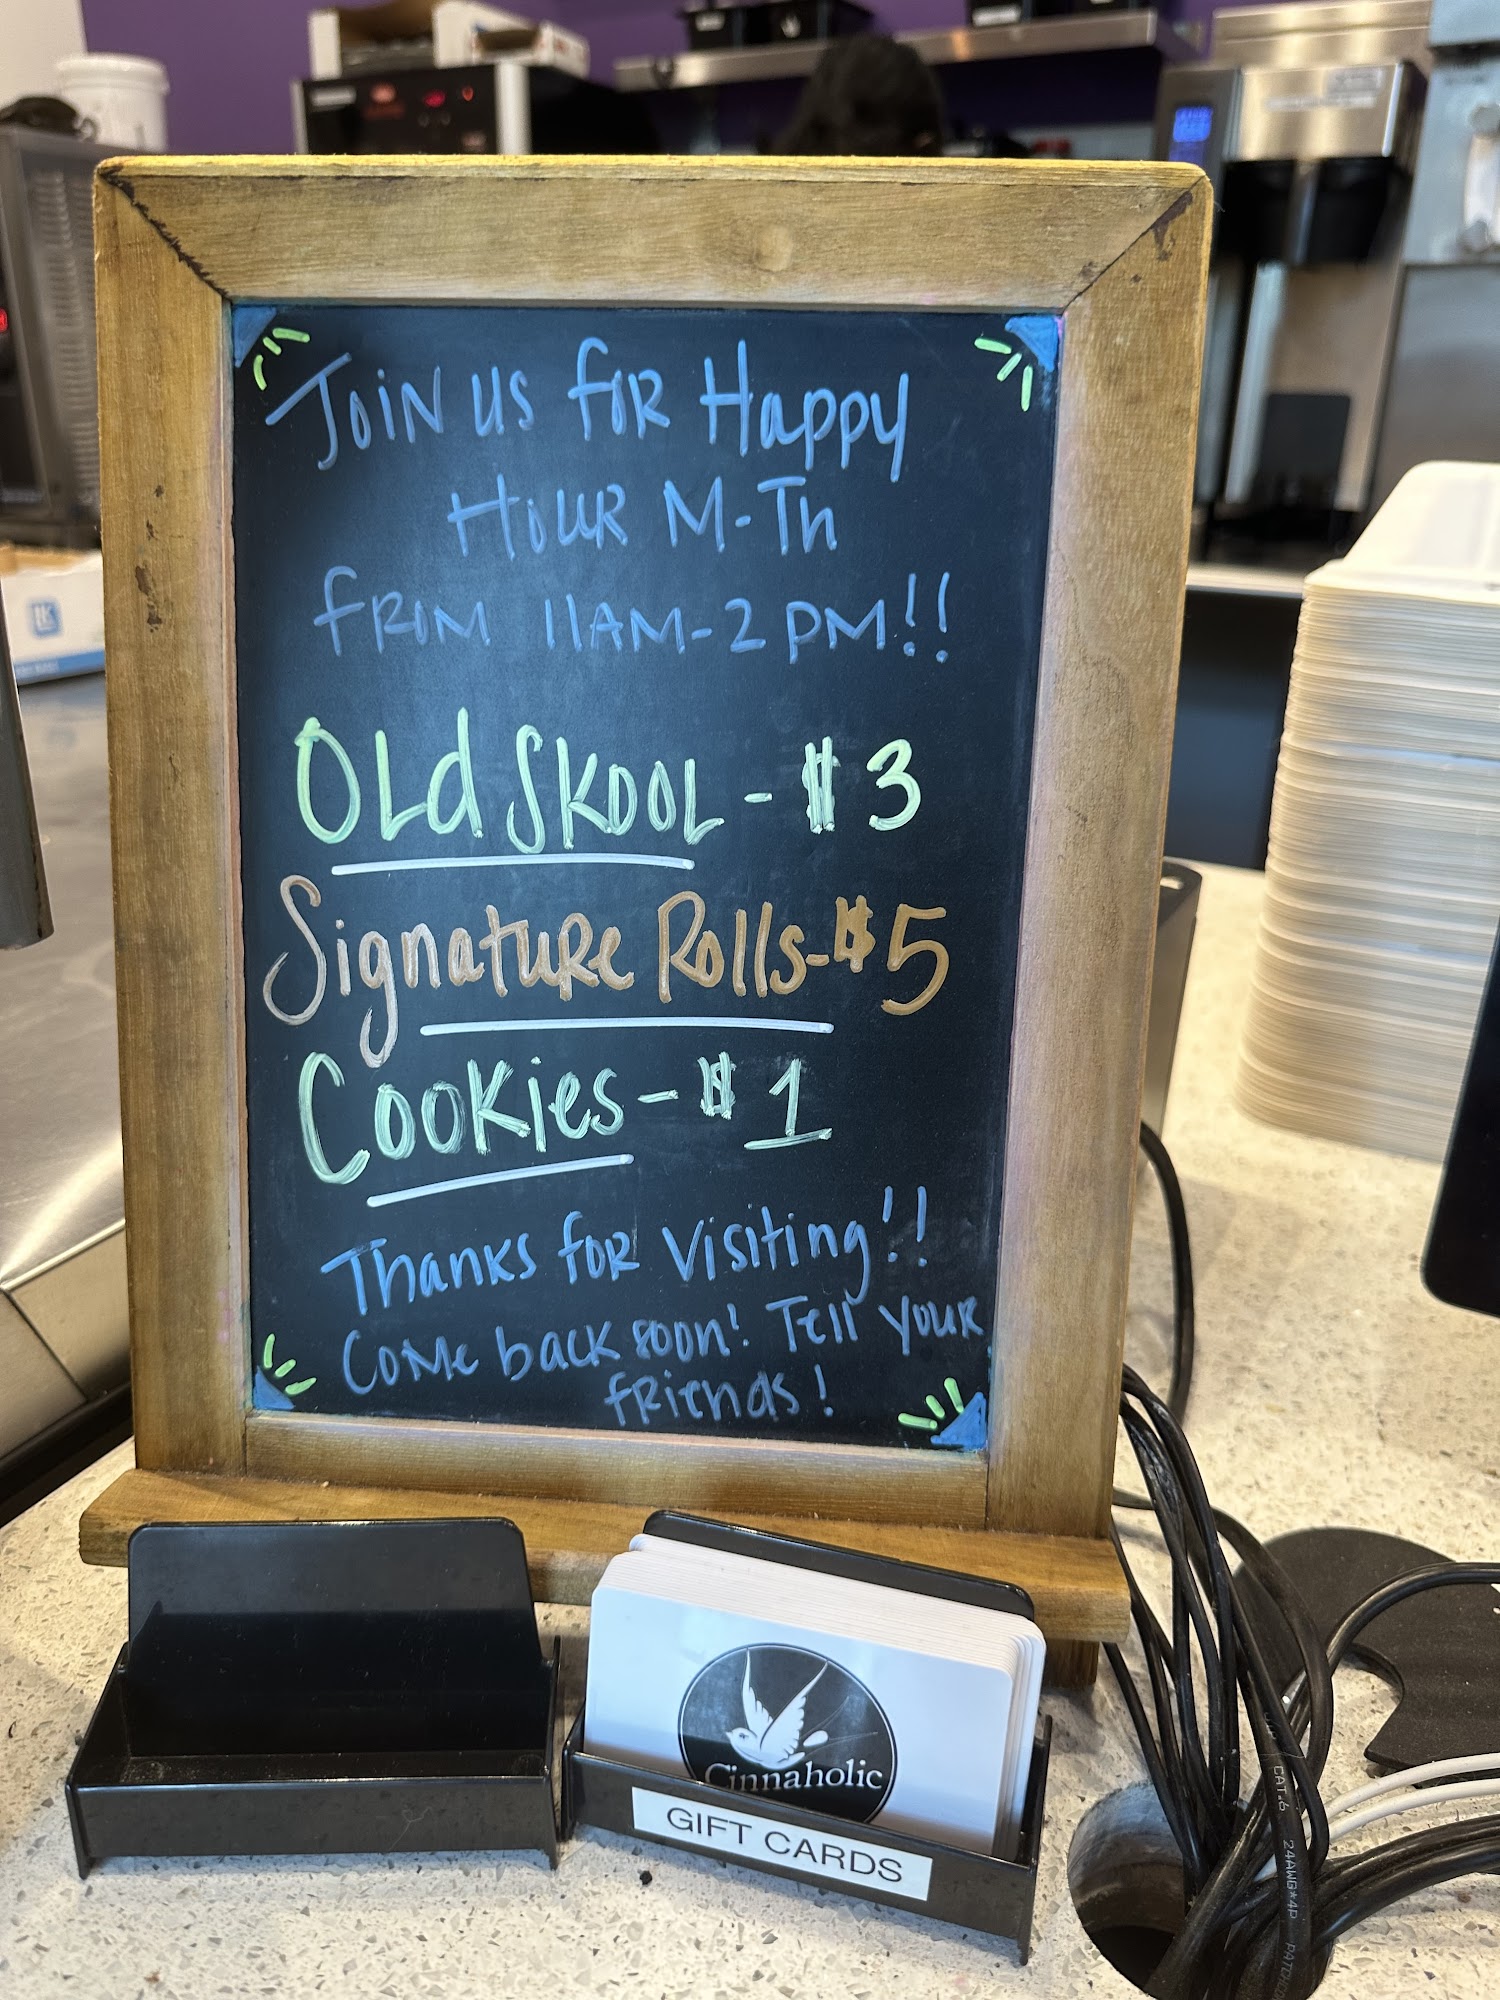 Join us for Happy
Hour M-Th
from 11AM-2PM!!
Old Skool - $3
Signature Rolls-$5
Cookies - $1
Thanks for visiting!!
Come back soon! Tell your
friends!
Cinnaholic
GIFT CARDS
CAT.6 24AWG*4P